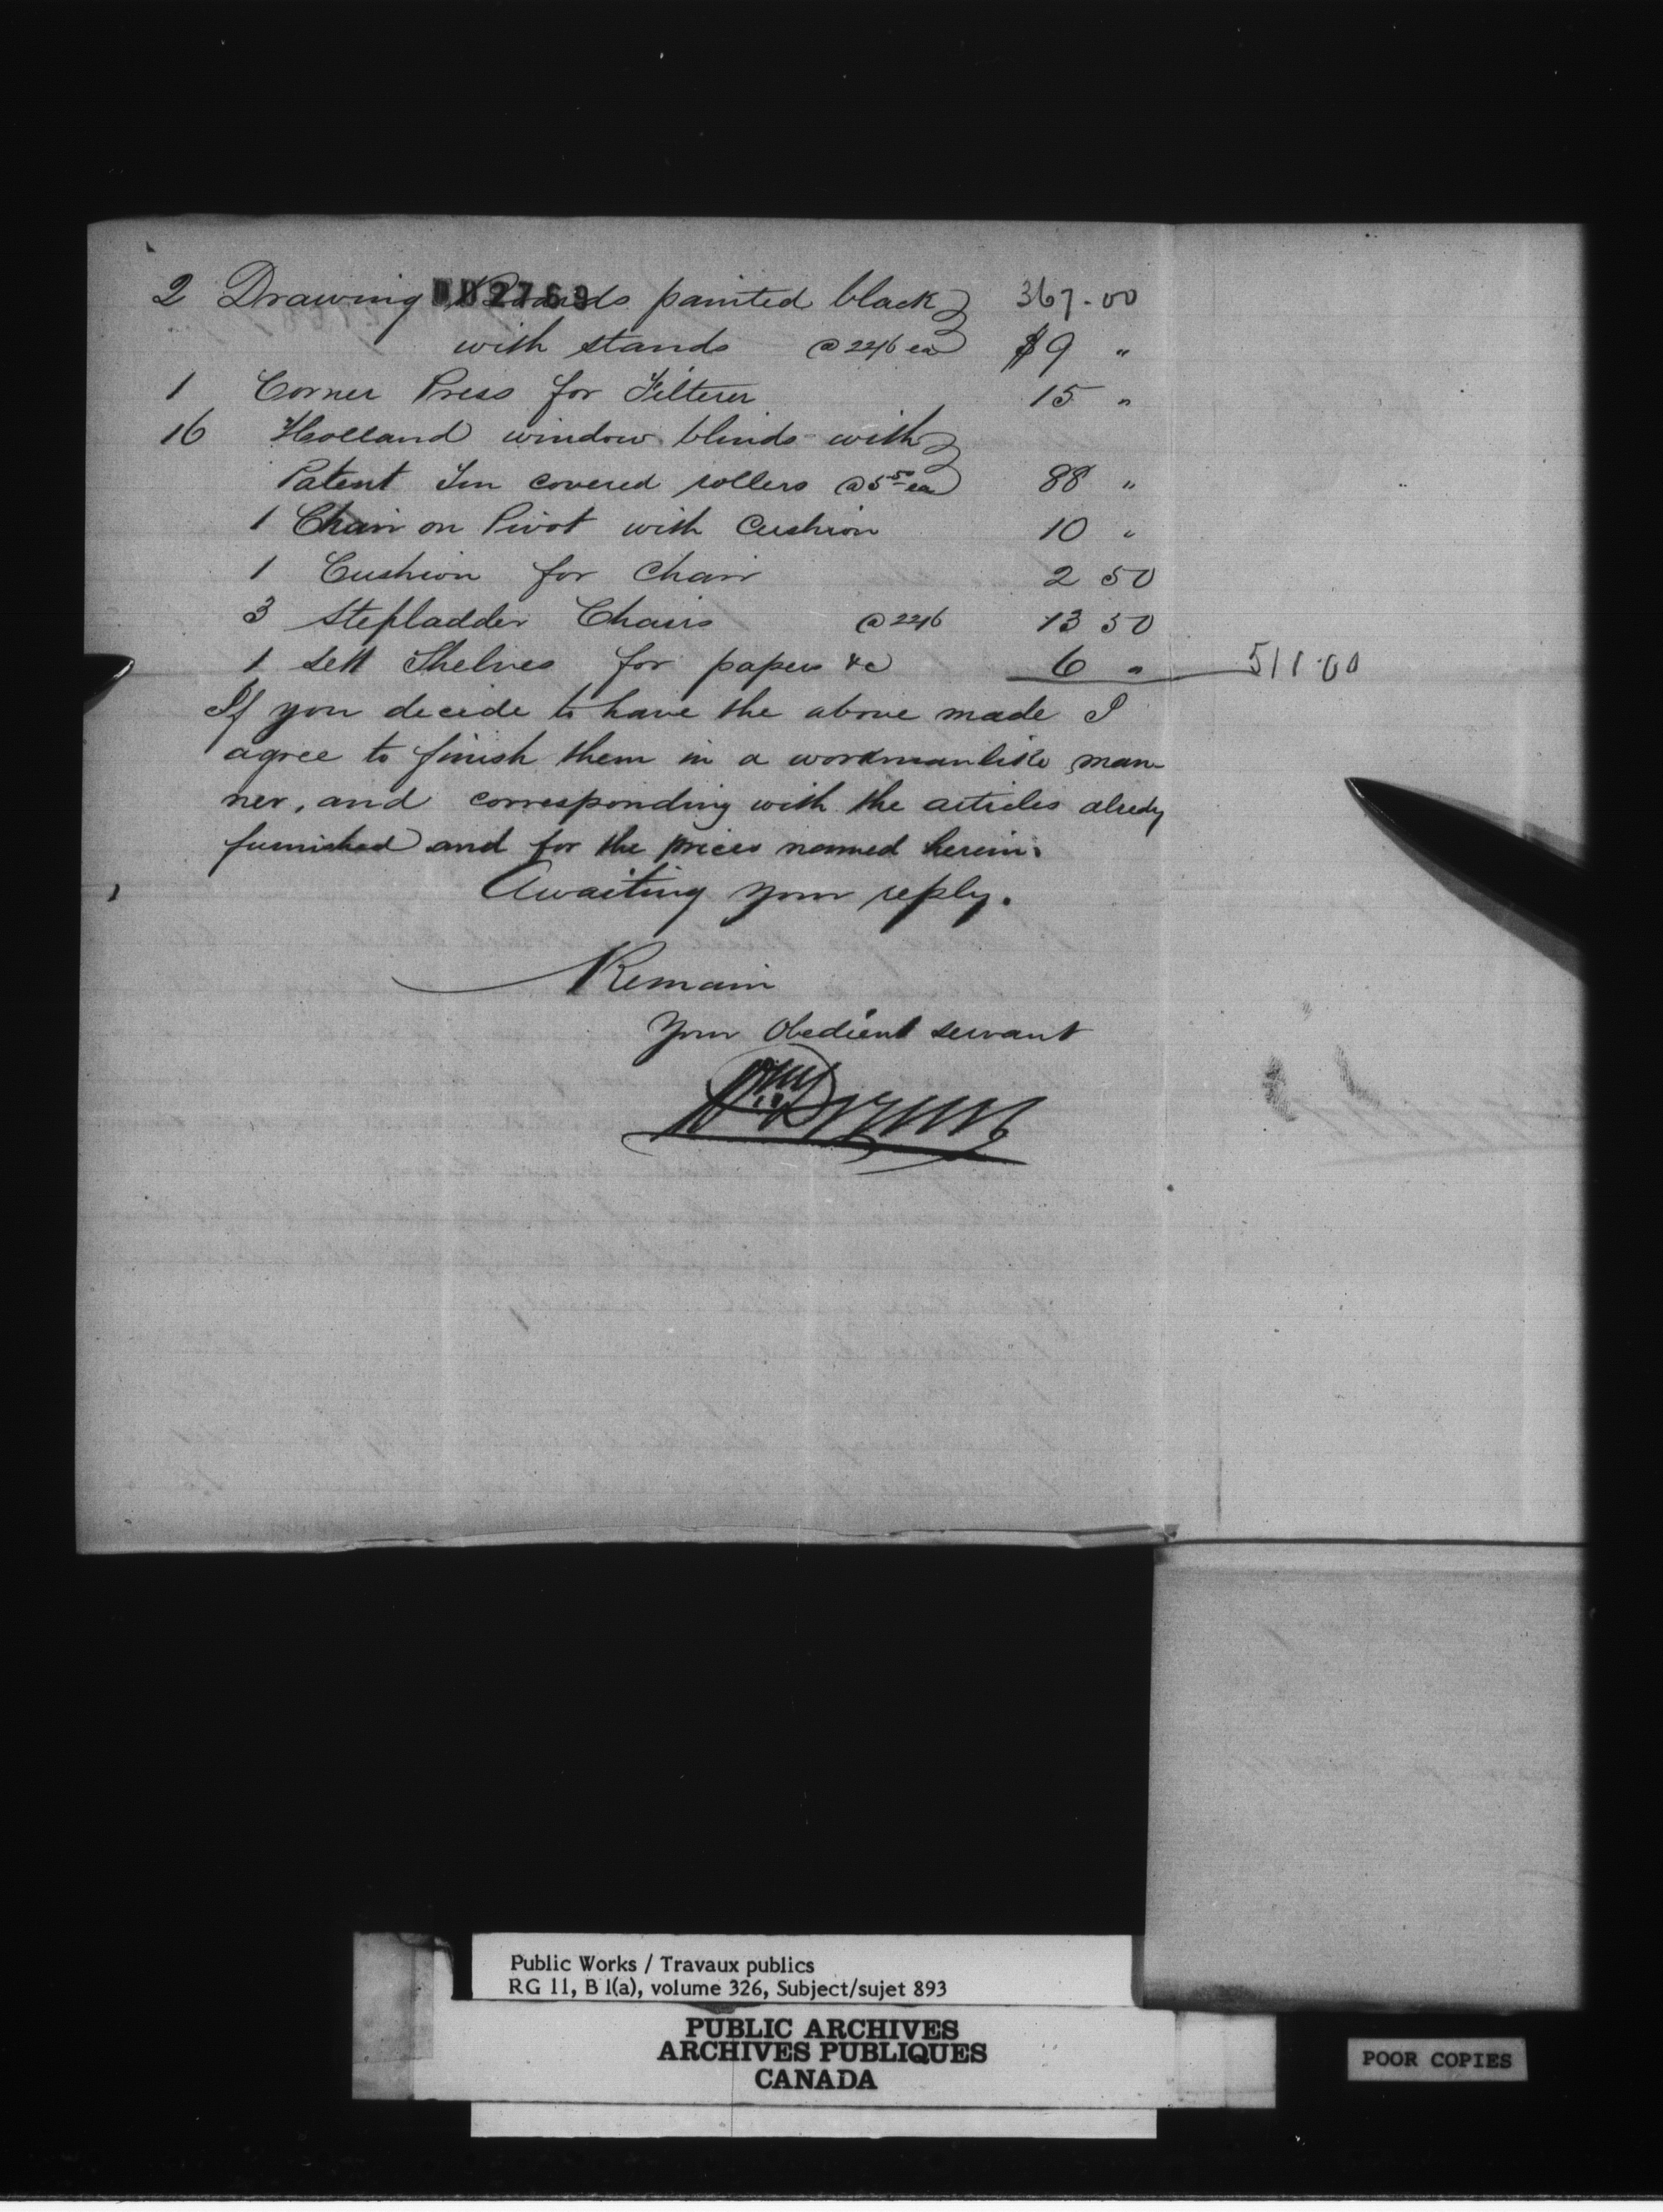 2 Drawing Boards painted black 367.00
002769
with stands @ 22/6 ea $9 "
1 Corner Press for Filterer 15 "
16 Holland window blinds with
Patent Tin covered rollers @ 5 50 ea 88 "
1 Chair on Pivot with Cushion 10 "
1 Cushion for Chair 2 50
3 Stepladder Chairs @ 22/6 13 50
1 Sett Shelves for papers &c 6 " 511.00
If you decide to have the above made I
agree to finish them in a workmanlike man-
ner, and corresponding with the articles alredy
furnished and for the prices named herein.
Awaiting your reply.
I Remain
Your Obedient servant
Public Works / Travaux publics
RG 11, B 1(a), volume 326, Subject/sujet 893
PUBLIC ARCHIVES
ARCHIVES PUBLIQUES
CANADA
POOR COPIES